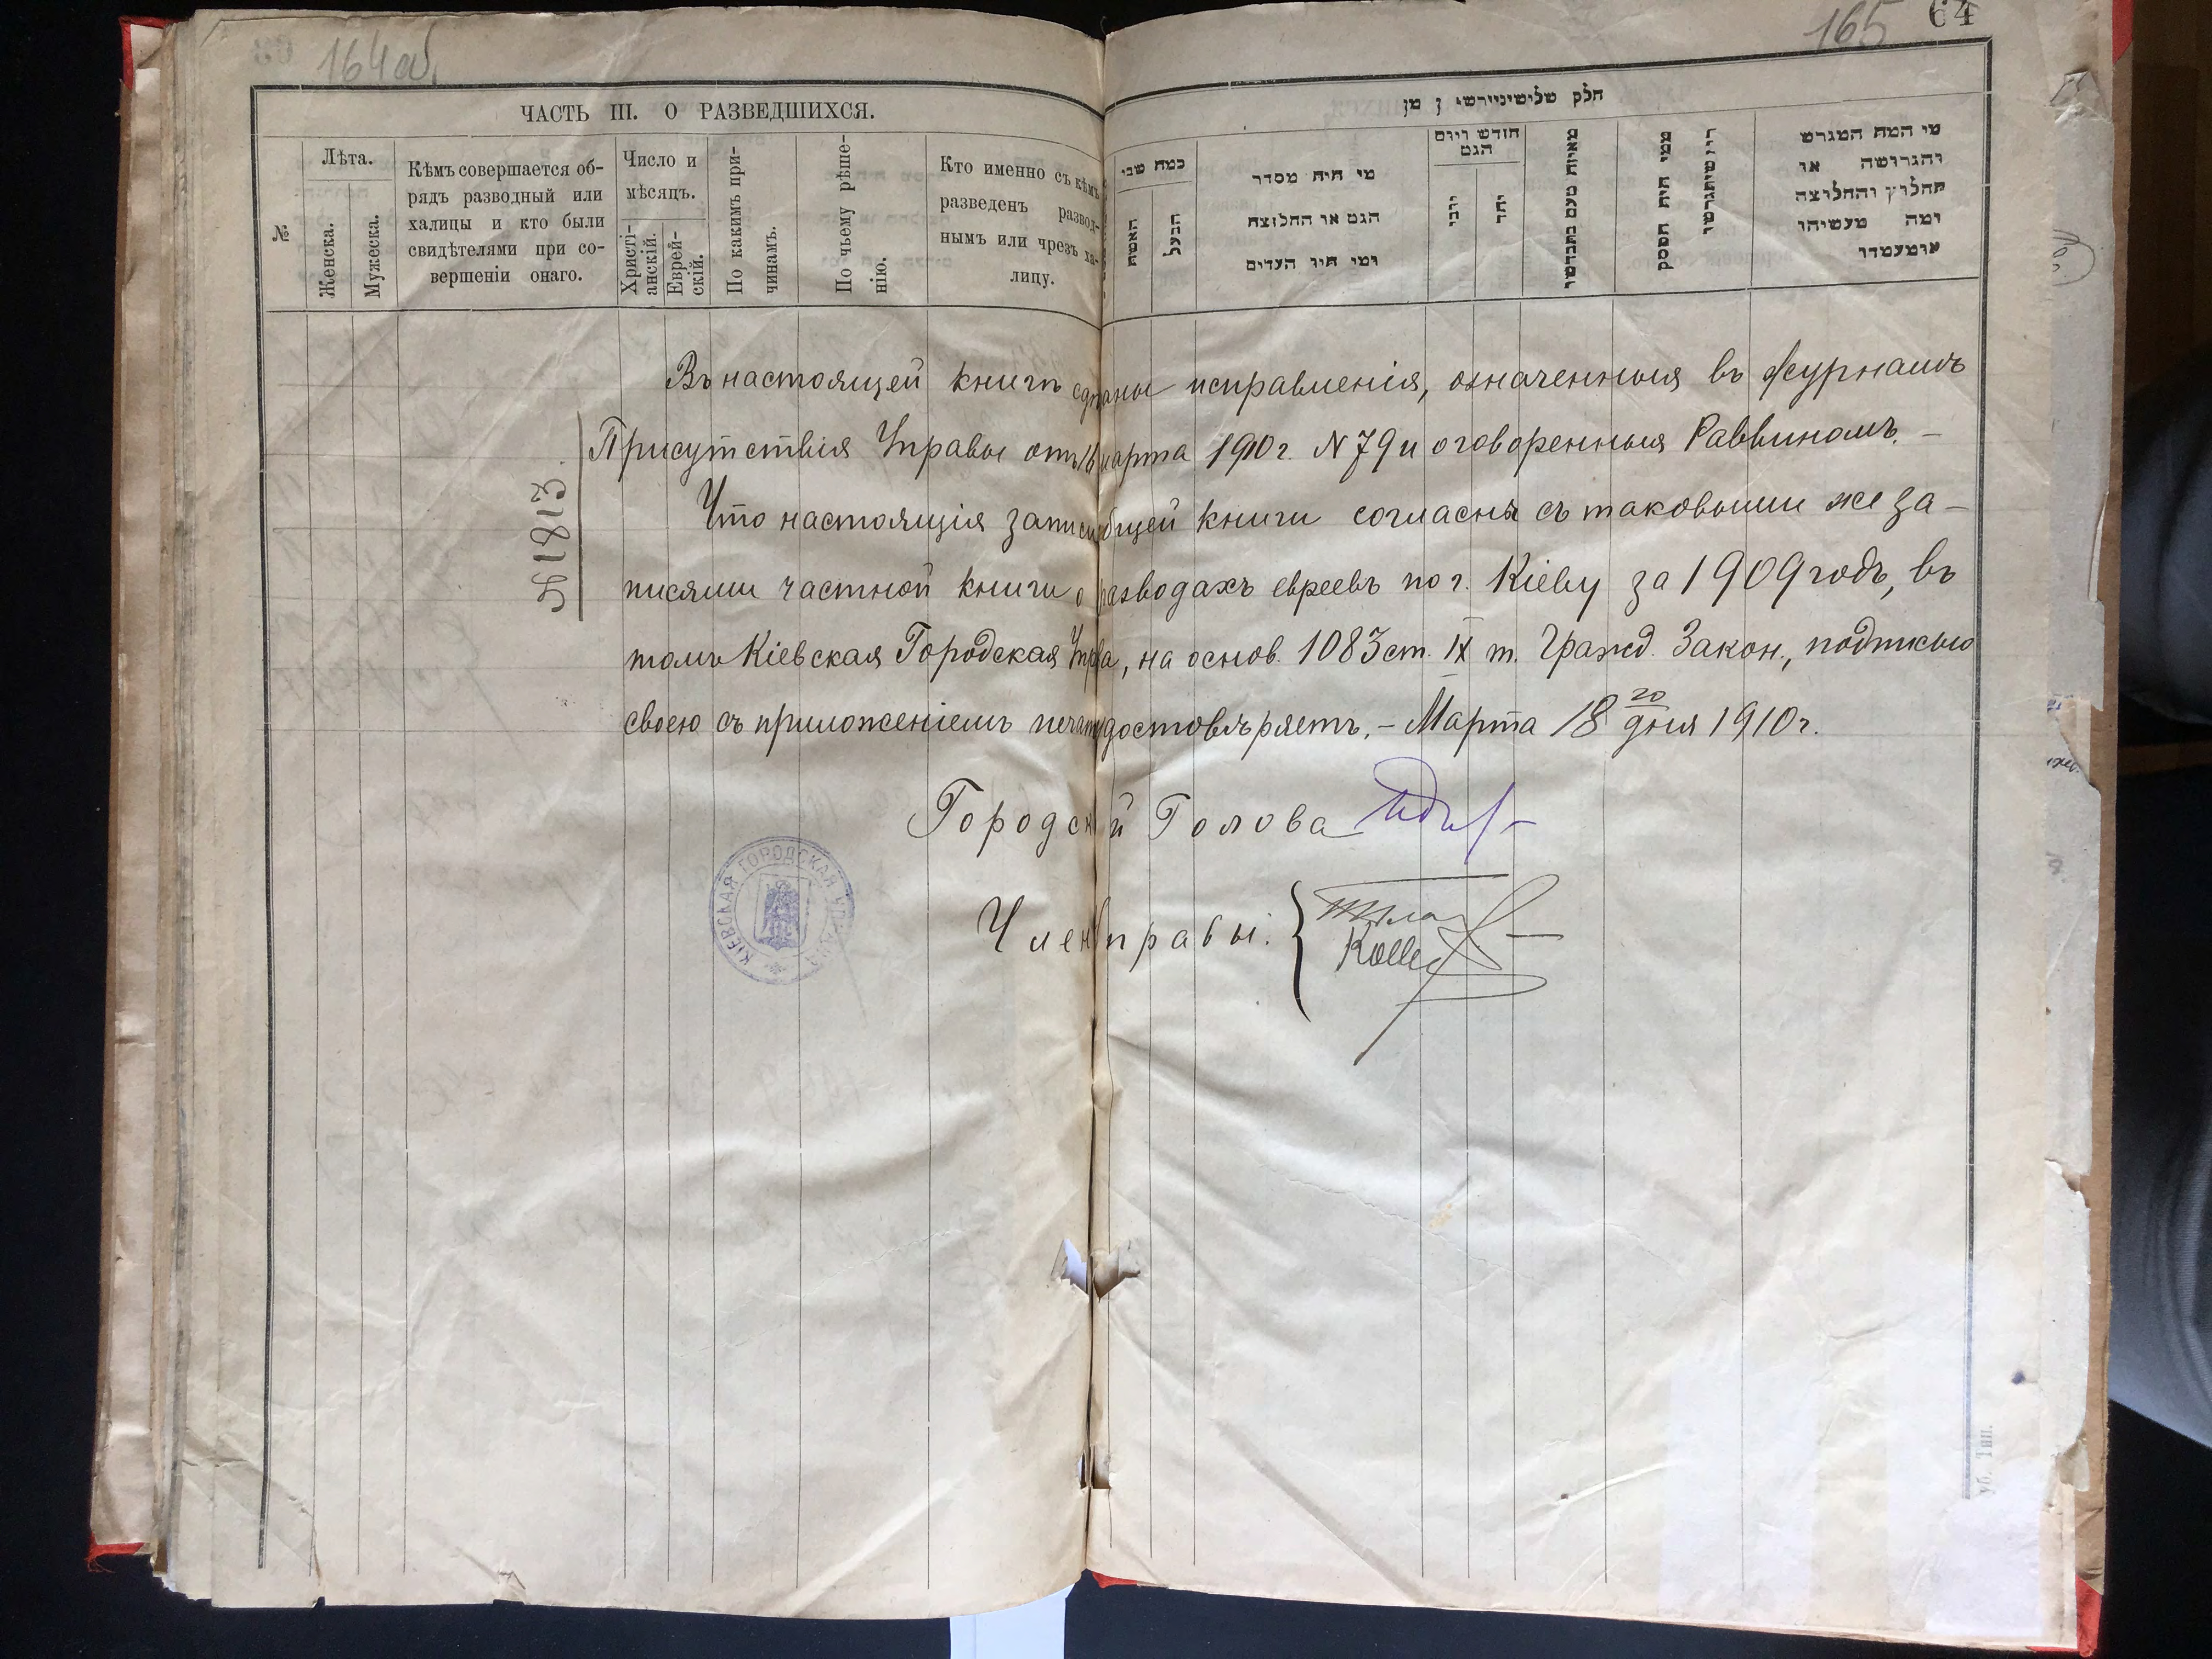 164 об.
165 64
ЧАСТЬ III. О РАЗВЕДШИХСЯ.
№
Лѣта.
Женска.
Мужеска.
Кѣмъ совершается об-
рядъ разводный или
халицы и кто были
свидѣтелями при со-
вершеніи онаго.
Число и
мѣсяцъ.
Христі-
анскій.
Еврей-
скій.
По какимъ при-
чинамъ.
По чьему рѣше-
нію.
Кто именно съ кѣмъ
разведенъ развод-
нымъ или чрезъ ха-
лицу.
כמה שני
האשה
הבעל
מי היה מסדר
הגט או החליצה
ומי היו העדים
חודש ויום
הגט
מאיזה טעם נתגרשו
ממי היה הפסק
דין שיתגרשו
מי המה המגרש
והגרושה או
החלוץ והחלוצה
ומה מעשיהו
ומעמדו
Въ настоящей книгѣ сдѣланы исправленія, означенныя въ журналѣ
Присутствія Управы отъ 18 марта 1910 г. N 79 и оговоренныя Раввиномъ. –
Что настоящія записи общей книги согласны съ таковыми же за-
писями частной книги о разводахъ евреевъ по г. Кіеву за 1909 годъ, въ
томъ Кіевская Городская Управа, на основ. 1083 ст. IX т. Гражд. Закон., подписью
своею съ приложеніемъ печати удостовѣряетъ. – Марта 18 го дня 1910 г.
N 1813.
Городской Голова
Члены Управы:
КІЕВСКАЯ ГОРОДСКАЯ УПРАВА
уб. Тип.